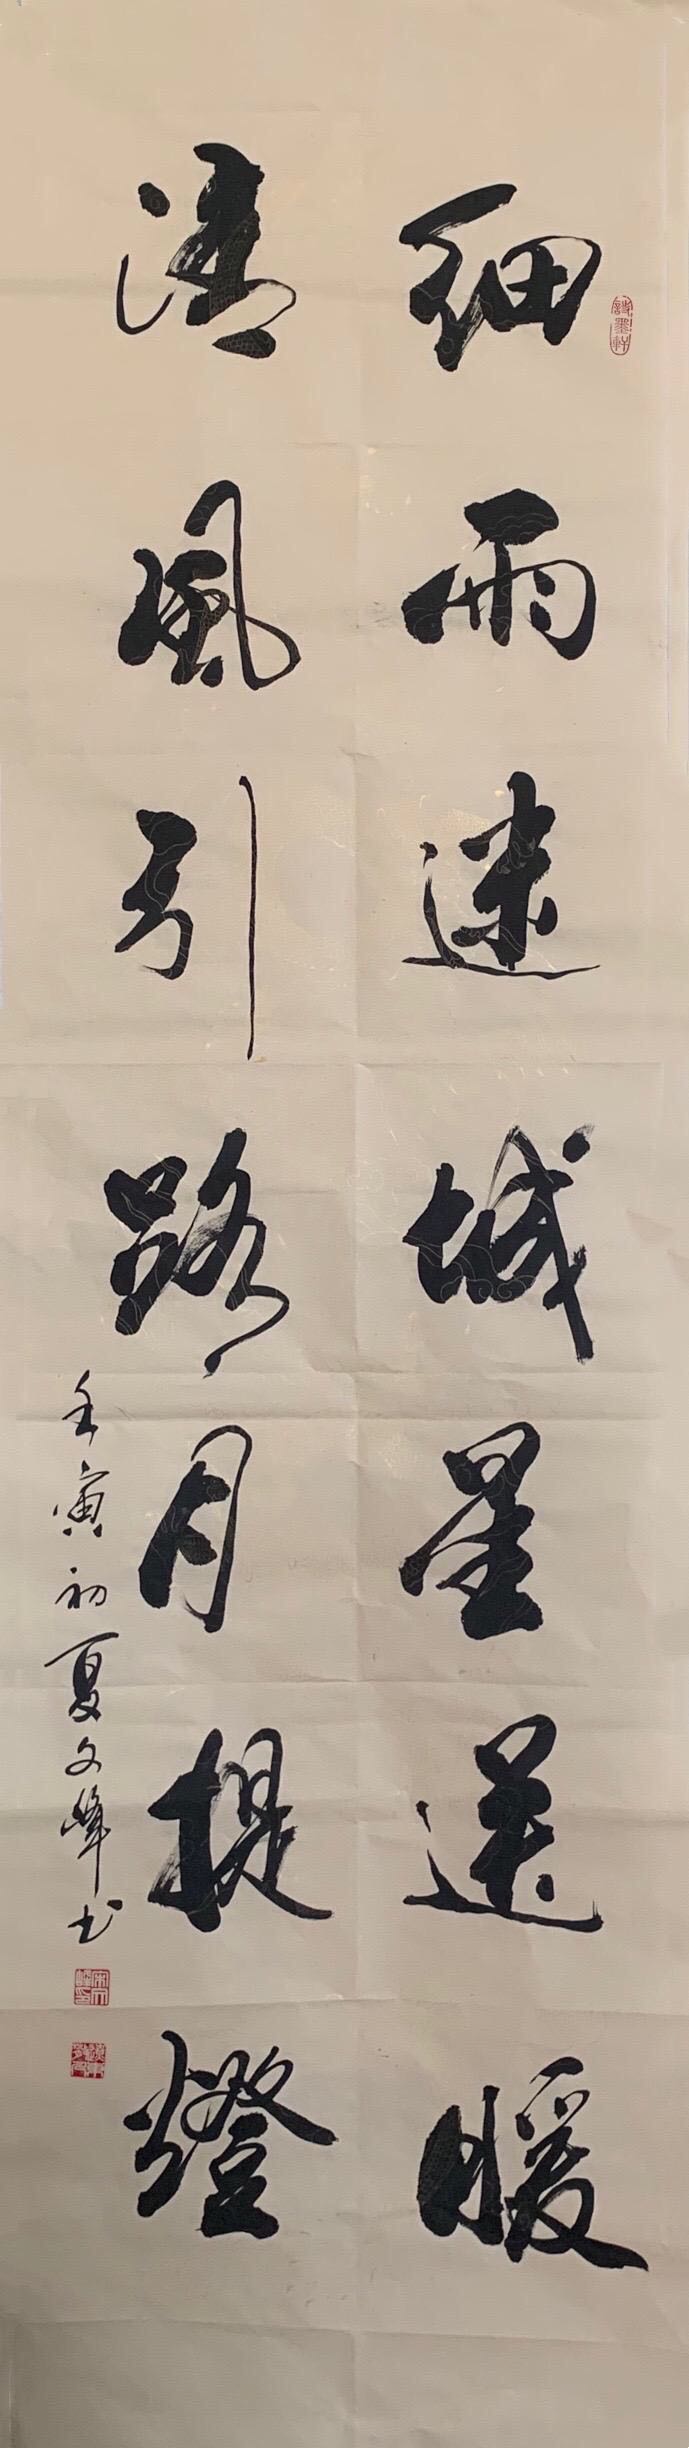 細雨迷城星送暖
清風引路月提燈
壬寅初夏文峰书